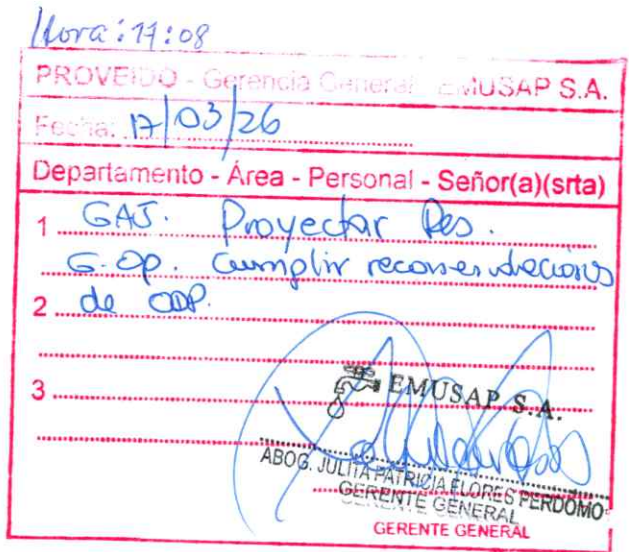 Hora: 17:08
PROVEIDO - Gerencia General - EMUSAP S.A.
Fecha: 17/03/26
Departamento - Área - Personal - Señor(a)(srta)
1 GAJ. Proyectar Res.
G. Op. Cumplir recomendaciones
2 de OPP.
3
EMUSAP S.A.
ABOG. JULITA PATRICIA FLORES PERDOMO
GERENTE GENERAL
GERENTE GENERAL